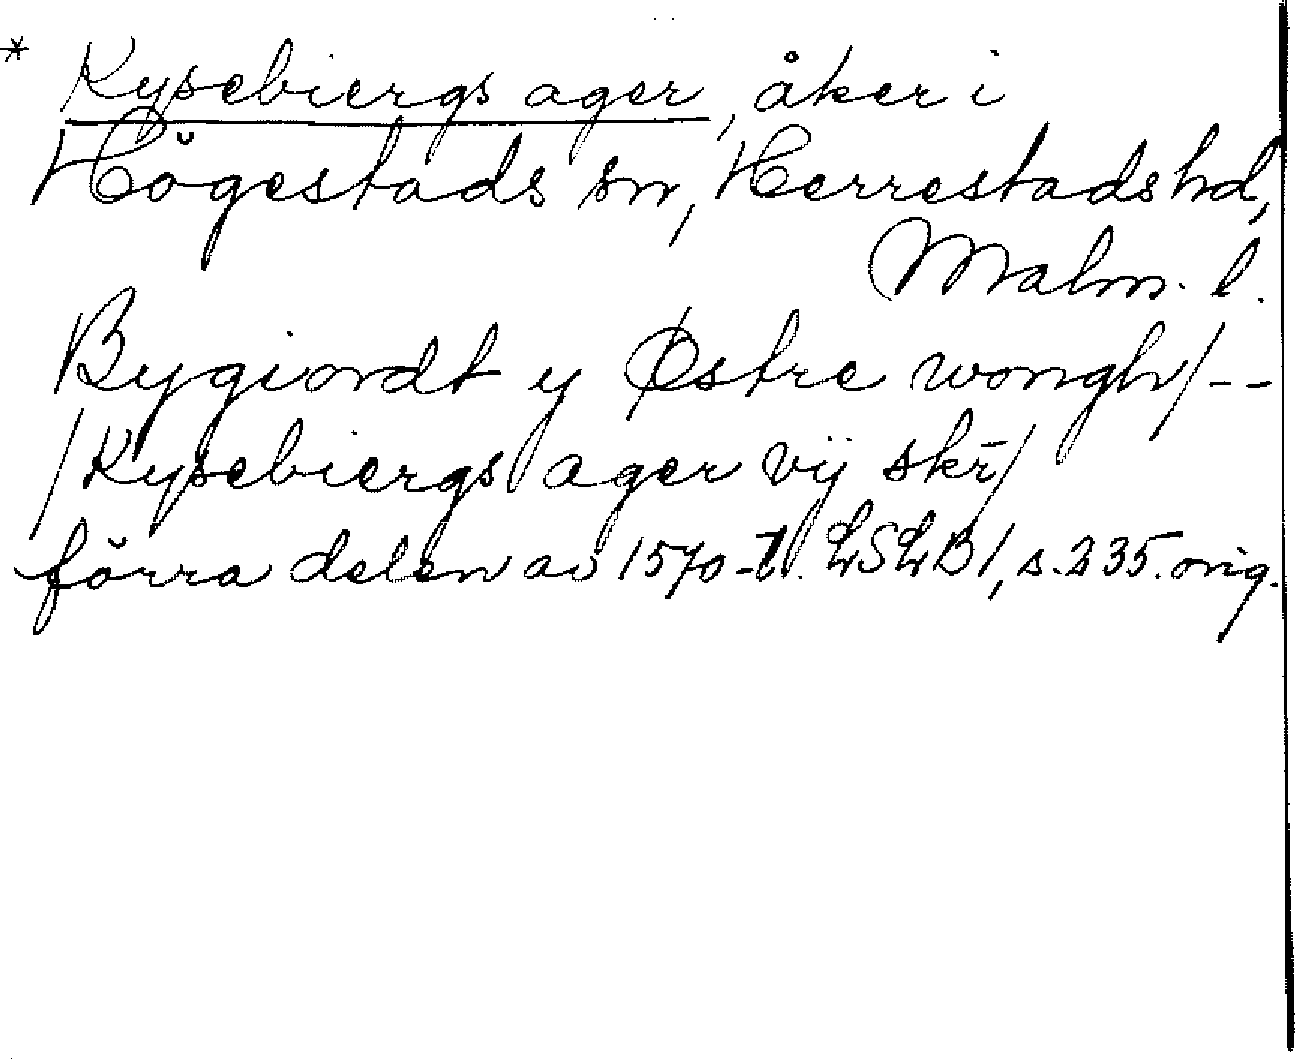 * Kysebiergs ager, åker i
Högestads sn, Herrestads hd,
Malm. l.
Bygiordt y Østre wongh/--
/Kysebiergs ager vij skr̄/
förra delen av 1570-t. LSLB1, s. 235. orig.